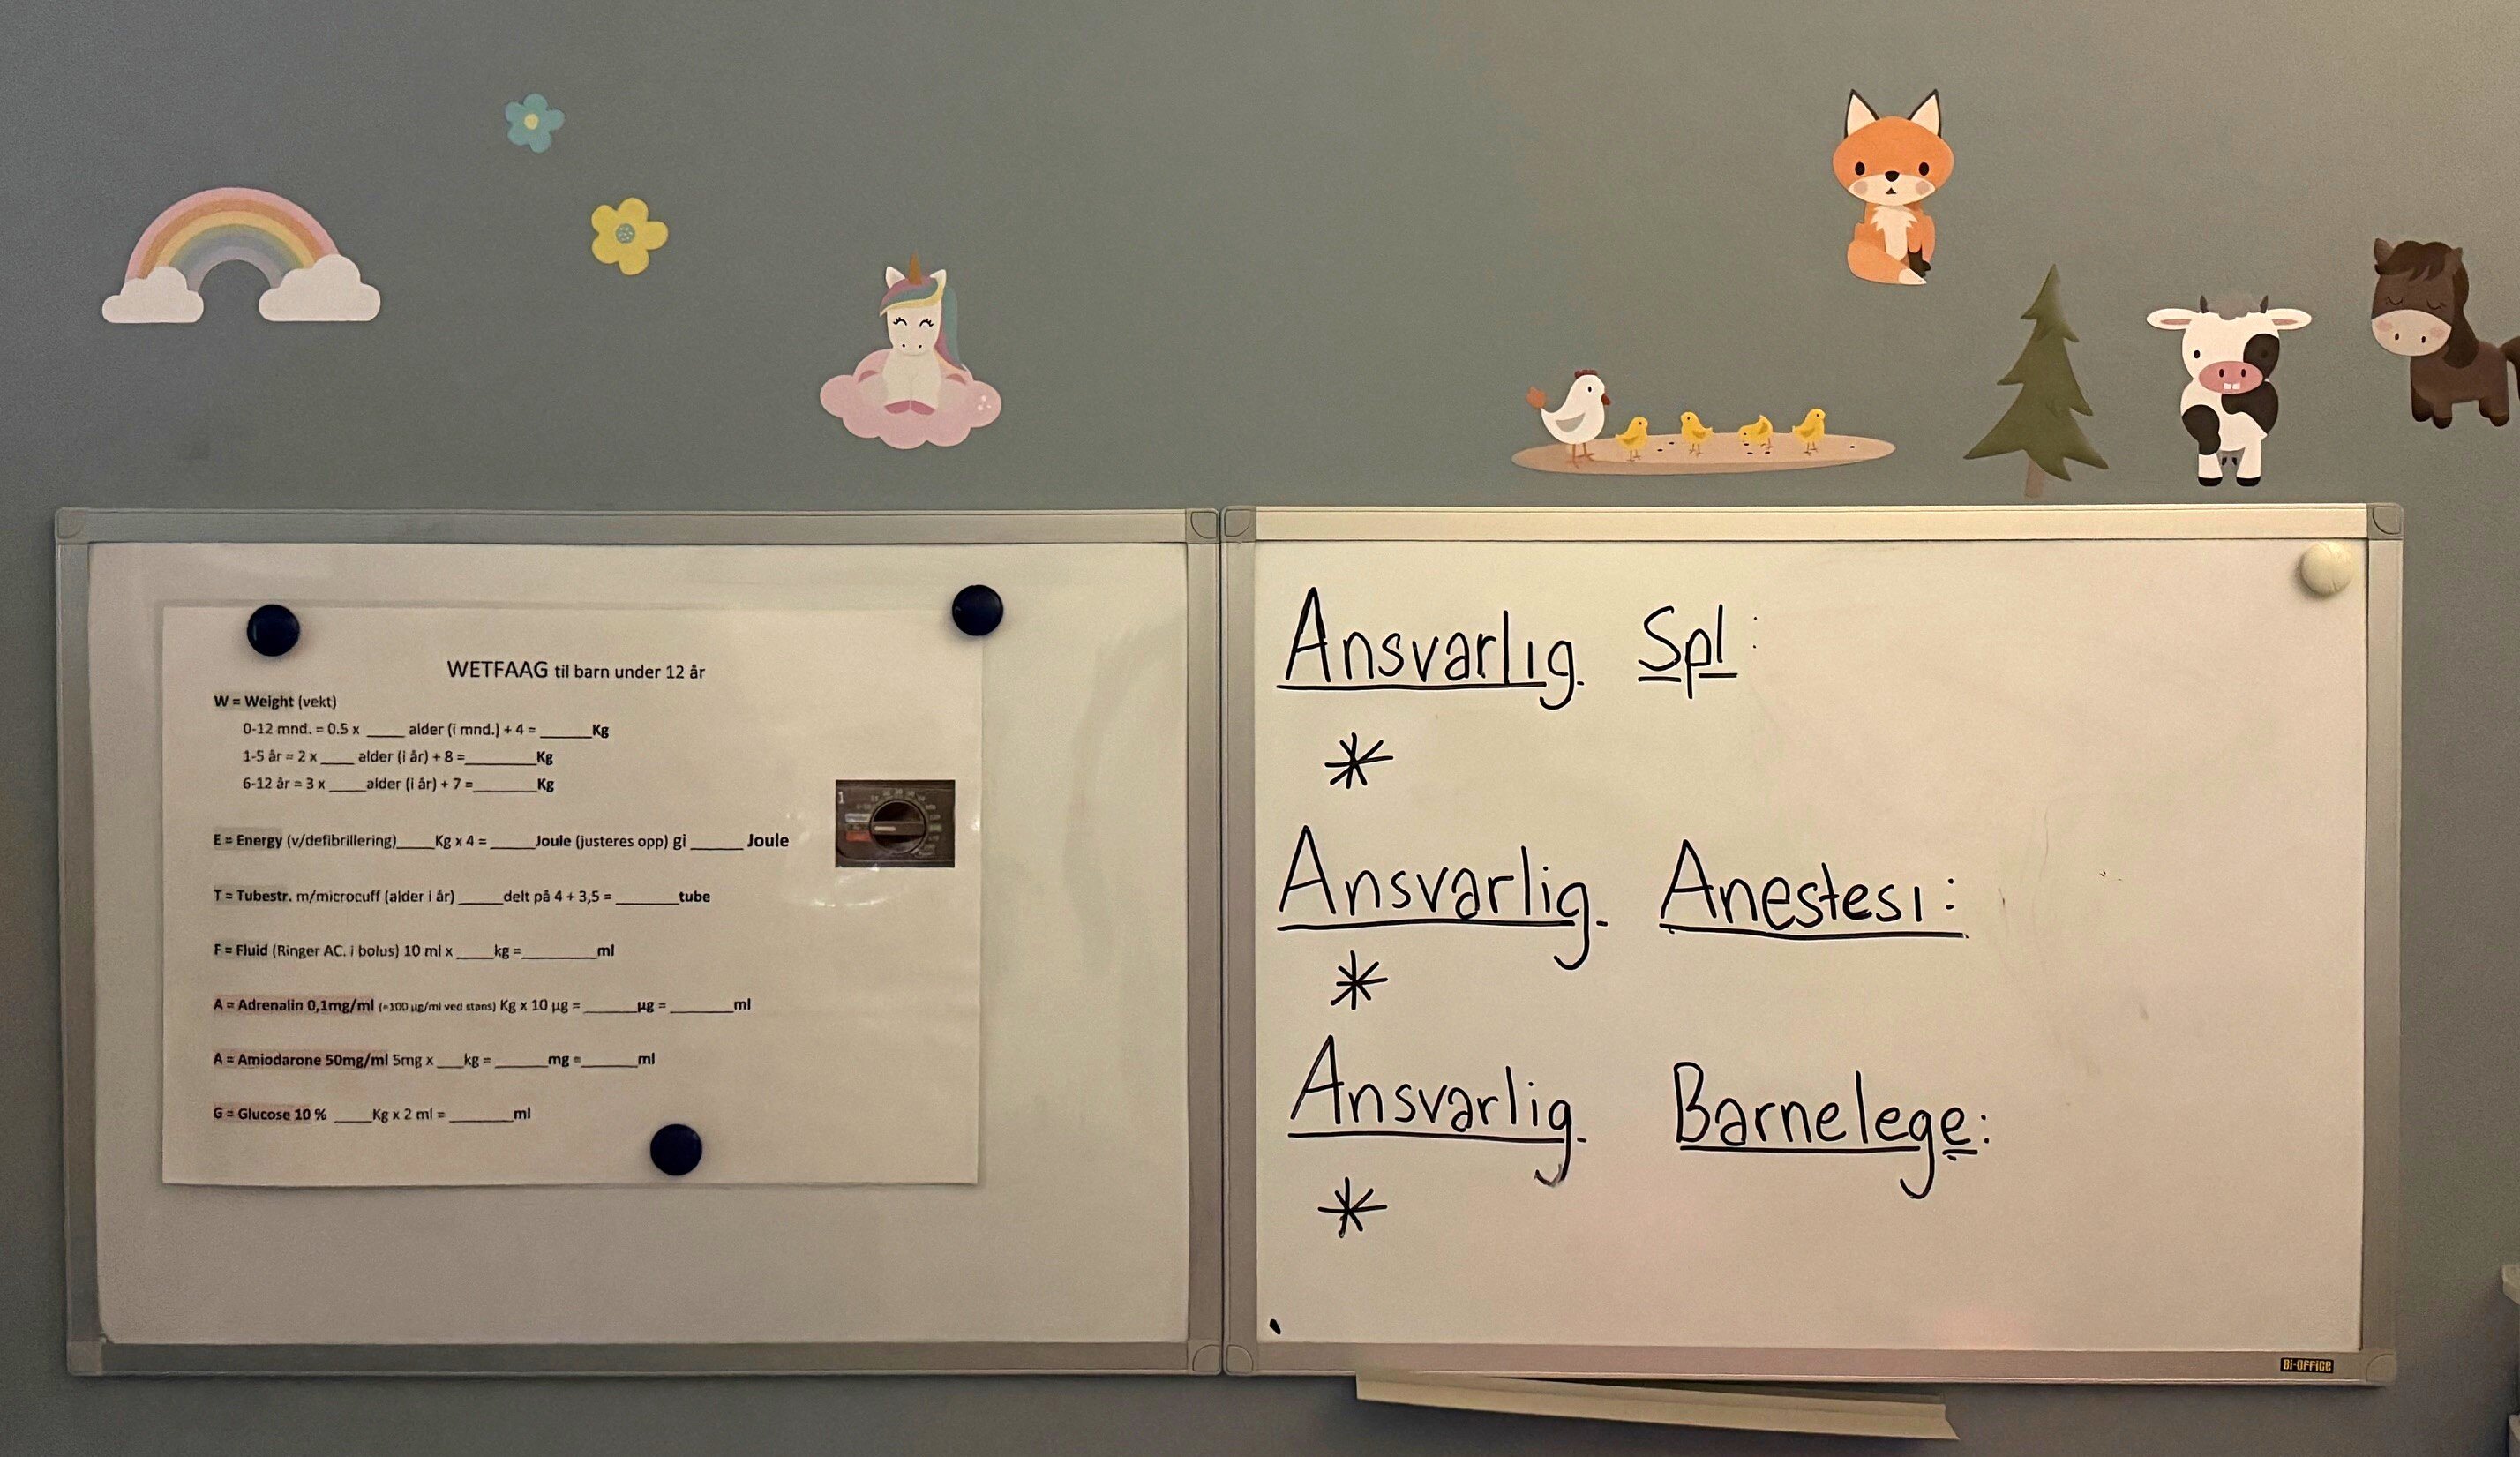 WETFAAG til barn under 12 år
W = Weight (vekt)
0-12 mnd. = 0.5 x ____ alder (i mnd.) + 4 = _____Kg
1-5 år = 2 x ____ alder (i år) + 8 =________Kg
6-12 år = 3 x ____alder (i år) + 7 =_______Kg
E = Energy (v/defibrillering)____Kg x 4 = _____Joule (justeres opp) gi ______ Joule
T = Tubestr. m/microcuff (alder i år) _____delt på 4 + 3,5 = _______tube
F = Fluid (Ringer AC. i bolus) 10 ml x ____kg =________ml
A = Adrenalin 0,1mg/ml (=100 µg/ml ved stans) Kg x 10 µg = ______µg = _______ml
A = Amiodarone 50mg/ml 5mg x ___kg = ______mg =______ml
G = Glucose 10 % ____Kg x 2 ml = _______ml
1
Ansvarlig Spl:
*
Ansvarlig Anestesi:
*
Ansvarlig Barnelege:
*
Bi-OFFiCE